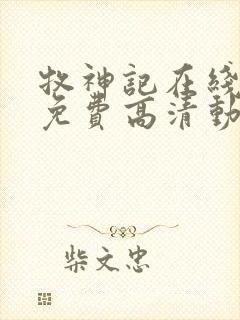 牧神记在线
免费高清動
柴文忠